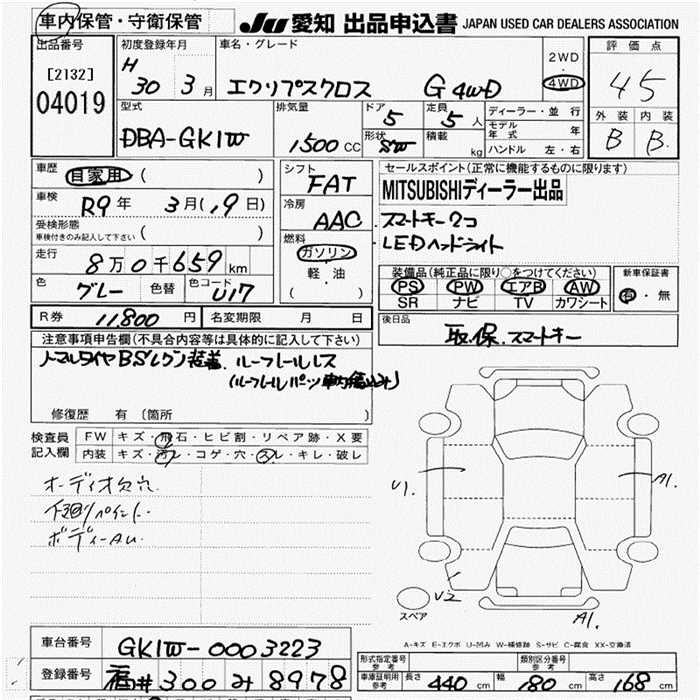 車内保管・守衛保管
JU 愛知 出品申込書 JAPAN USED CAR DEALERS ASSOCIATION
出品番号
[2132]
04019
初度登録年月
H 30 3月
車名・グレード
エクリプスクロス G4WD
2WD
・
4WD
評価点
4.5
外装 内装
B B
型式
DBA-GK1W
排気量
1500 CC
ドア 5
定員 5人
形状 SW
積載 kg
ディーラー・並行
モデル年式 年
ハンドル 左・右
車歴
自家用 ( )
車検
R9年 3月(.9日)
受検形態
車検付きのみ記入して下さい ( )
走行
8万0千659km
色
グレー
色替
色コード
U17
シフト
FAT
冷房
AAC
燃料
ガソリン
軽・油
( )
セールスポイント(正常に機能するものに限ります)
MITSUBISHIディーラー出品
スマートキー2コ
LEDヘッドライト
装備品(純正品に限り○をつけてください)
PS PW エアB AW
SR ナビ TV カワシート
新車保証書
有・無
R券 11,800円
名変期限 月 日
後日品
取.保.スマートキー
注意事項申告欄(不具合内容等は具体的に記入して下さい)
ノーマルタイヤBSレグノ装着. ルーフレールレス
(ルーフレールパーツ車内積込み)
修復歴 有 (箇所
検査員記入欄
FW キズ・飛石・ヒビ割・リペア跡・X要
内装 キズ・汚レ・コゲ・穴・スレ・キレ・破レ
オーディオ欠穴
下廻りペイント.
ボディーAU.
U1.
A1.
U2
A1.
スペア
A-キズ E-エクボ U-凹み W-補修跡 S-サビ C-腐食 XX-交換済
車台番号 GK1W-0003223
登録番号 福井 300 み 8978
形式指定番号 参考
類別区分番号 参考
車庫証明用 参考 長さ 440 cm 幅 180 cm 高さ 168 cm